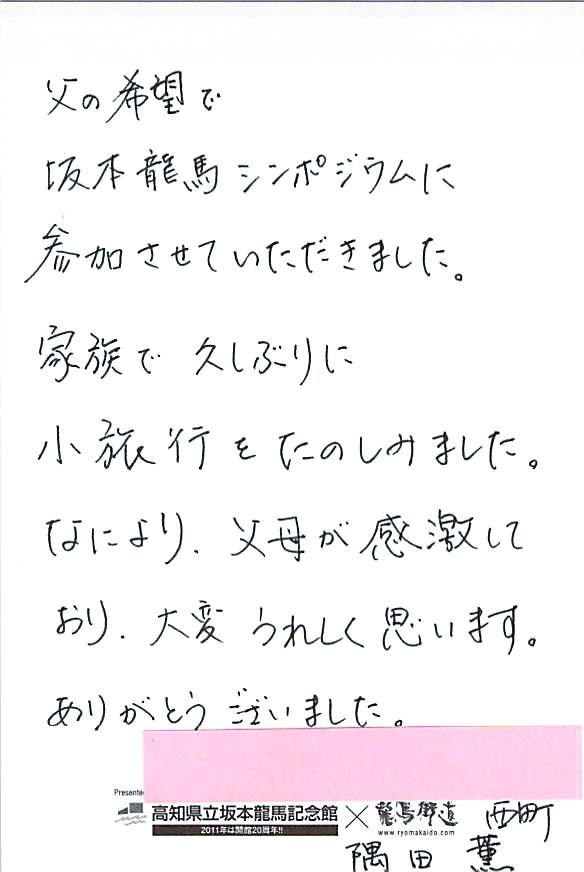 父の希望で
坂本龍馬シンポジウムに
参加させていただきました。
家族で 久しぶりに
小旅行をたのしみました。
なにより、父母が感激して
おり、大変うれしく思います。
ありがとうございました。
Presented
高知県立坂本龍馬記念館 × 龍馬街道 西町
2011年は開館20周年!! www.ryomakaido.com
隅田 薫